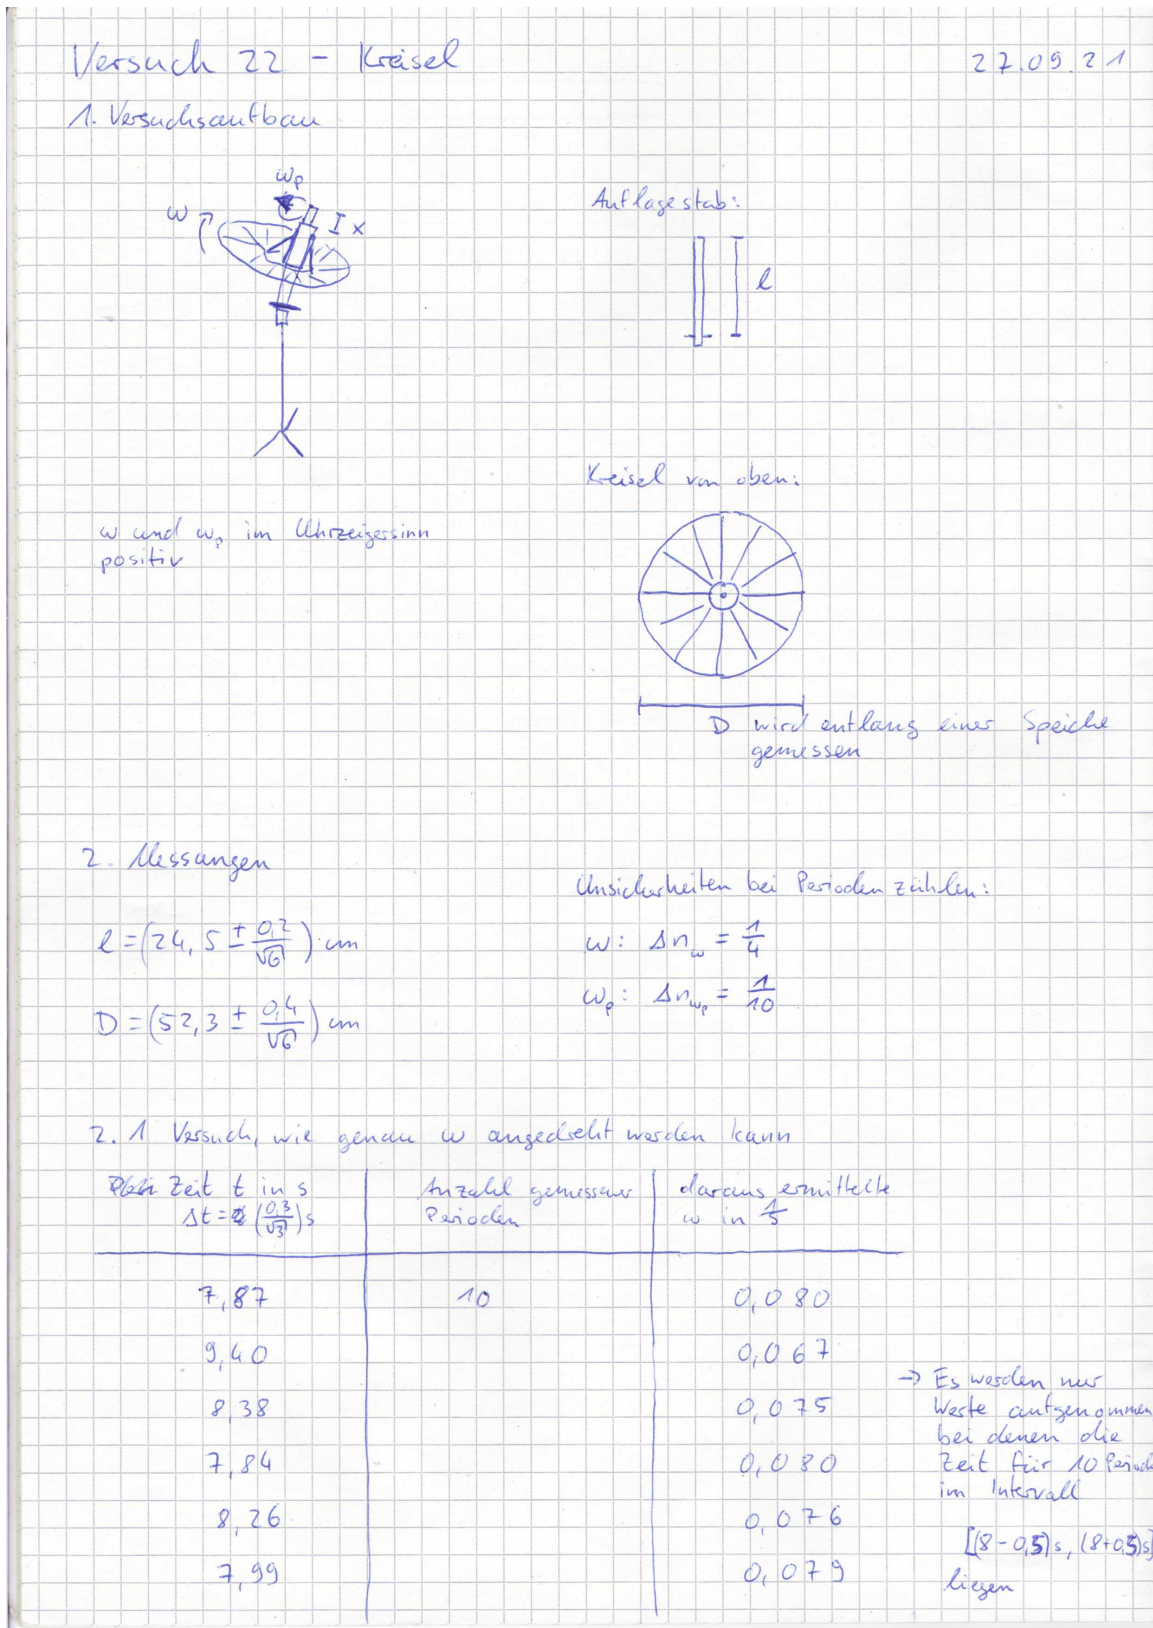 Versuch 22 - Kreisel
27.09.21
1. Versuchsaufbau
ω_p
ω
x
Auflagestab:
l
Kreisel von oben:
ω und ω_p im Uhrzeigersinn
positiv
D wird entlang einer Speiche
gemessen
2. Messungen
Unsicherheiten bei Perioden zählen:
l = (24,5 ± 0,2/√6) cm
ω: Δn_ω = 1/4
D = (52,3 ± 0,4/√6) cm
ω_p: Δn_ω_p = 1/10
2.1 Versuch, wie genau ω angedreht werden kann
Zeit t in s
Δt = (0,3/√3) s
Anzahl gemessener
Perioden
daraus ermittelte
ω in 1/s
7,87 10 0,080
9,40 0,067
8,38 0,075
7,84 0,080
8,26 0,076
7,99 0,079
→ Es werden nur
Werte aufgenommen
bei denen die
Zeit für 10 Period
im Intervall
[(8-0,5)s, (8+0,5)s]
liegen